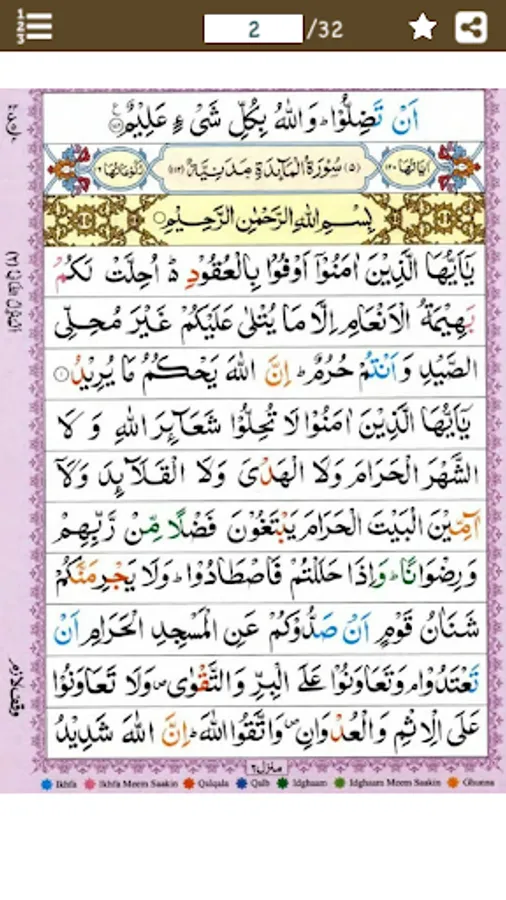 2 /32
اَنۡ تَضِلُّوۡا ؕ وَاللّٰهُ بِكُلِّ شَىۡءٍ عَلِيۡمٌ
اٰيَاتُهَا ١٢٠ (٥) سُوۡرَةُ الۡمَآئِدَةِ مَدَنِيَّةٌ (١١٢) رُكُوۡعَاتُهَا ١٦
بِسۡمِ اللّٰهِ الرَّحۡمٰنِ الرَّحِيۡمِ
يٰۤاَيُّهَا الَّذِيۡنَ اٰمَنُوۡۤا اَوۡفُوۡا بِالۡعُقُوۡدِ ؕ اُحِلَّتۡ لَـكُمۡ
بَهِيۡمَةُ الۡاَنۡعَامِ اِلَّا مَا يُتۡلٰى عَلَيۡكُمۡ غَيۡرَ مُحِلِّى
الصَّيۡدِ وَاَنۡـتُمۡ حُرُمٌ ؕ اِنَّ اللّٰهَ يَحۡكُمُ مَا يُرِيۡدُ ١
يٰۤاَيُّهَا الَّذِيۡنَ اٰمَنُوۡا لَا تُحِلُّوۡا شَعَآئِرَ اللّٰهِ وَلَا
الشَّهۡرَ الۡحَـرَامَ وَلَا الۡهَدۡىَ وَلَا الۡقَلَٓائِدَ وَلَاۤ
آٰمِّيۡنَ الۡبَيۡتَ الۡحَـرَامَ يَبۡتَغُوۡنَ فَضۡلًا مِّنۡ رَّبِّهِمۡ
وَرِضۡوَانًا ؕ وَاِذَا حَلَلۡتُمۡ فَاصۡطَادُوۡا ؕ وَلَا يَجۡرِمَنَّكُمۡ
شَنَاٰنُ قَوۡمٍ اَنۡ صَدُّوۡكُمۡ عَنِ الۡمَسۡجِدِ الۡحَـرَامِ اَنۡ
تَعۡتَدُوۡا ۘ وَتَعَاوَنُوۡا عَلَى الۡبِرِّ وَالتَّقۡوٰى ۖ وَلَا تَعَاوَنُوۡا
عَلَى الۡاِثۡمِ وَالۡعُدۡوَانِ ۖ وَاتَّقُوا اللّٰهَ ؕ اِنَّ اللّٰهَ شَدِيۡدُ
منزل ٢
Ikhfa Ikhfa Meem Saakin Qalqala Qalb Idghaam Idghaam Meem Saakin Ghunna